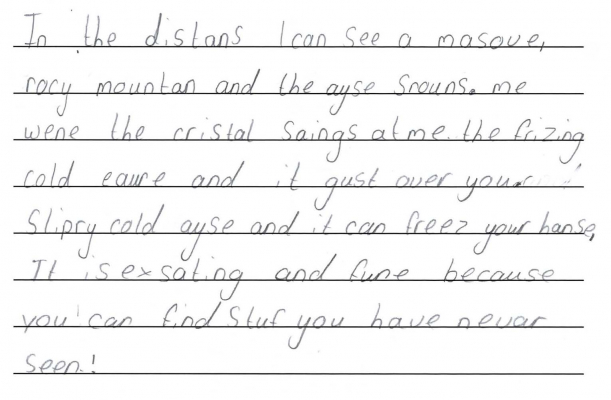 In the distans I can See a masove,
rocy mountan and the ayse Srouns. me
wene the cristal Saings at me. the frizing
cold eaure and it gust over your
Slipry cold ayse and it can freez your hanse,
It is exsating and fune because
you can find Stuf you have nevar
Seen!